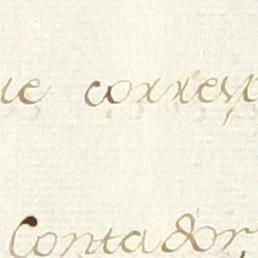 ue corresp
Contador,